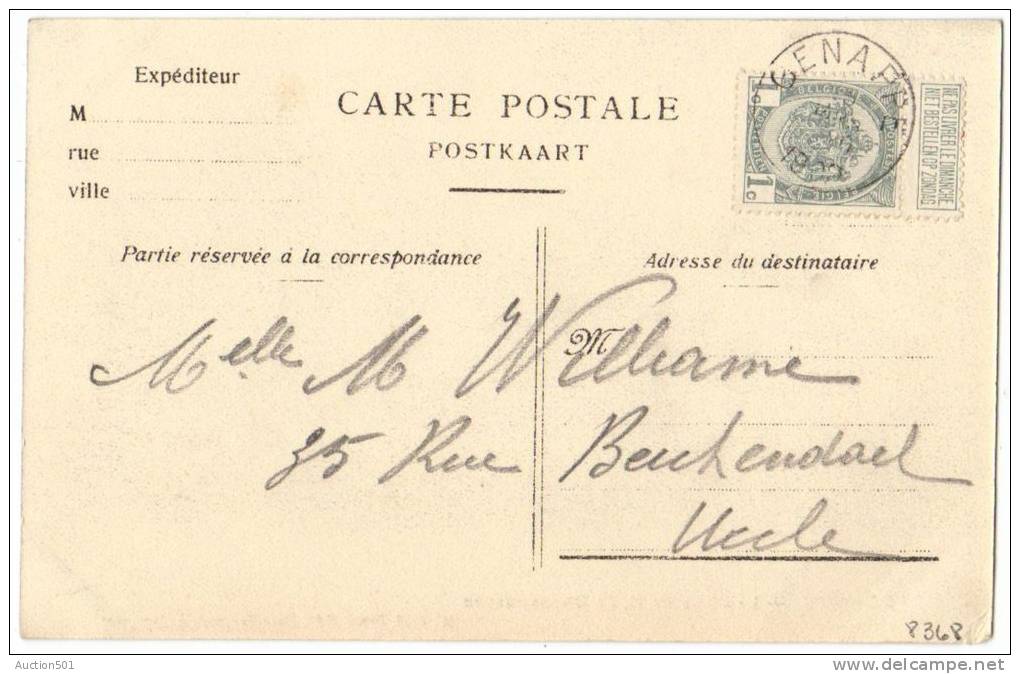 Expéditeur
M
rue
ville
CARTE POSTALE
POSTKAART
GENAPPE
1c
BELGIQUE
NE PAS LIVRER LE DIMANCHE
NIET BESTELLEN OP ZONDAG
1c
BELGIË
Partie réservée à la correspondance
Adresse du destinataire
M
Melle M Williame
35 Rue Beukendael
Uccle
8368
Auction501
delcampe.net